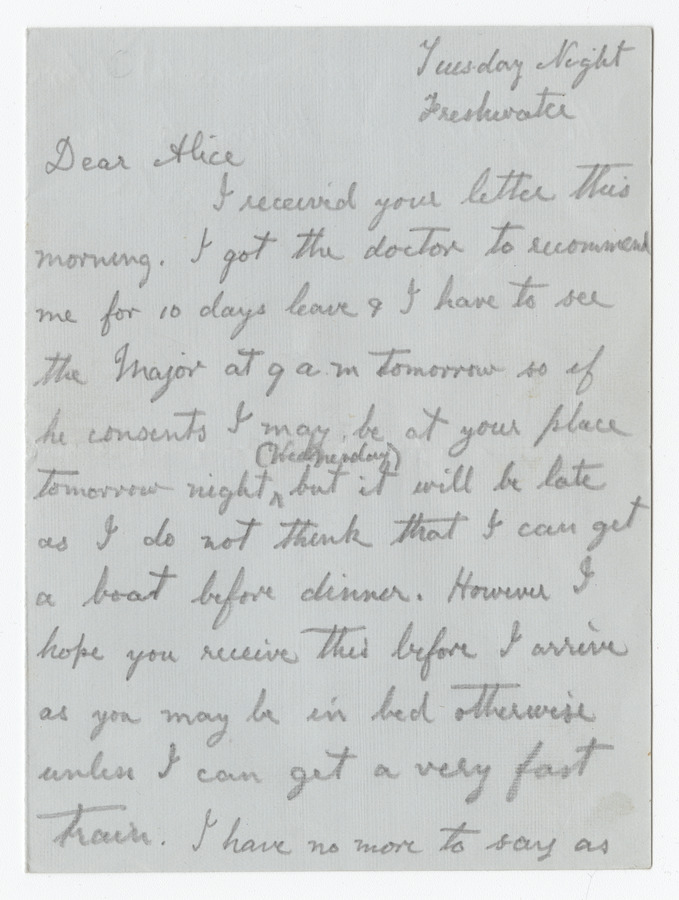 Tuesday Night
Freshwater
Dear Alice
I received your letter this
morning. I got the doctor to recommend
me for 10 days leave & I have to see
the Major at 9 a m tomorrow so if
he consents I may be at your place
(Wednesday)
tomorrow night ^ but it will be late
as I do not think that I can get
a boat before dinner. However I
hope you receive this before I arrive
as you may be in bed otherwise
unless I can get a very fast
train. I have no more to say as